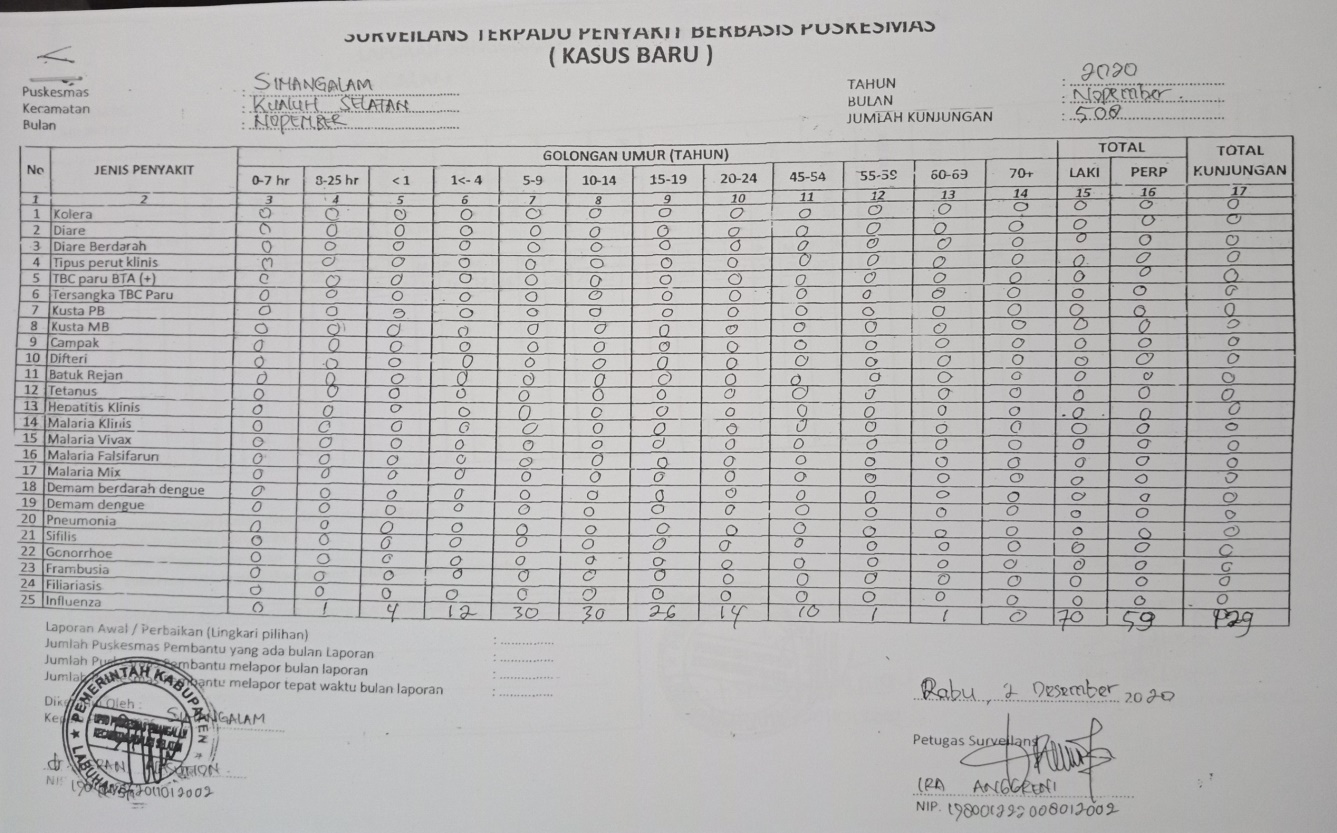 SURVEILANS TERPADU PENYAKIT BERBASIS PUSKESMAS
( KASUS BARU )
Puskesmas : SIMANGALAM
Kecamatan : KUALUH SELATAN
Bulan : NOPEMBER
TAHUN : 2020
BULAN : Nopember
JUMLAH KUNJUNGAN : 500
No JENIS PENYAKIT GOLONGAN UMUR (TAHUN) TOTAL TOTAL KUNJUNGAN
0-7 hr 8-25 hr < 1 1<- 4 5-9 10-14 15-19 20-24 45-54 55-59 60-69 70+ LAKI PERP
1 2 3 4 5 6 7 8 9 10 11 12 13 14 15 16 17
1 Kolera 0 0 0 0 0 0 0 0 0 0 0 0 0 0 0
2 Diare 0 0 0 0 0 0 0 0 0 0 0 0 0 0 0
3 Diare Berdarah 0 0 0 0 0 0 0 0 0 0 0 0 0 0 0
4 Tipus perut klinis 0 0 0 0 0 0 0 0 0 0 0 0 0 0 0
5 TBC paru BTA (+) 0 0 0 0 0 0 0 0 0 0 0 0 0 0 0
6 Tersangka TBC Paru 0 0 0 0 0 0 0 0 0 0 0 0 0 0 0
7 Kusta PB 0 0 0 0 0 0 0 0 0 0 0 0 0 0 0
8 Kusta MB 0 0 0 0 0 0 0 0 0 0 0 0 0 0 0
9 Campak 0 0 0 0 0 0 0 0 0 0 0 0 0 0 0
10 Difteri 0 0 0 0 0 0 0 0 0 0 0 0 0 0 0
11 Batuk Rejan 0 0 0 0 0 0 0 0 0 0 0 0 0 0 0
12 Tetanus 0 0 0 0 0 0 0 0 0 0 0 0 0 0 0
13 Hepatitis Klinis 0 0 0 0 0 0 0 0 0 0 0 0 0 0 0
14 Malaria Klinis 0 0 0 0 0 0 0 0 0 0 0 0 0 0 0
15 Malaria Vivax 0 0 0 0 0 0 0 0 0 0 0 0 0 0 0
16 Malaria Falsifarun 0 0 0 0 0 0 0 0 0 0 0 0 0 0 0
17 Malaria Mix 0 0 0 0 0 0 0 0 0 0 0 0 0 0 0
18 Demam berdarah dengue 0 0 0 0 0 0 0 0 0 0 0 0 0 0 0
19 Demam dengue 0 0 0 0 0 0 0 0 0 0 0 0 0 0 0
20 Pneumonia 0 0 0 0 0 0 0 0 0 0 0 0 0 0 0
21 Sifilis 0 0 0 0 0 0 0 0 0 0 0 0 0 0 0
22 Gonorrhoe 0 0 0 0 0 0 0 0 0 0 0 0 0 0 0
23 Frambusia 0 0 0 0 0 0 0 0 0 0 0 0 0 0 0
24 Filiariasis 0 0 0 0 0 0 0 0 0 0 0 0 0 0 0
25 Influenza 0 1 4 12 30 30 26 14 10 1 1 0 70 59 129
Laporan Awal / Perbaikan (Lingkari pilihan)
Jumlah Puskesmas Pembantu yang ada bulan Laporan :
Jumlah Pembantu melapor bulan laporan :
Jumlah melapor tepat waktu bulan laporan :
Oleh :
SIMANGALAM
PEMERINTAH KABUPATEN
LABUHAN
NIP
Rabu, 2 Desember 2020
Petugas Surveilans
IRA ANGGRENI
NIP. 198001222008012002